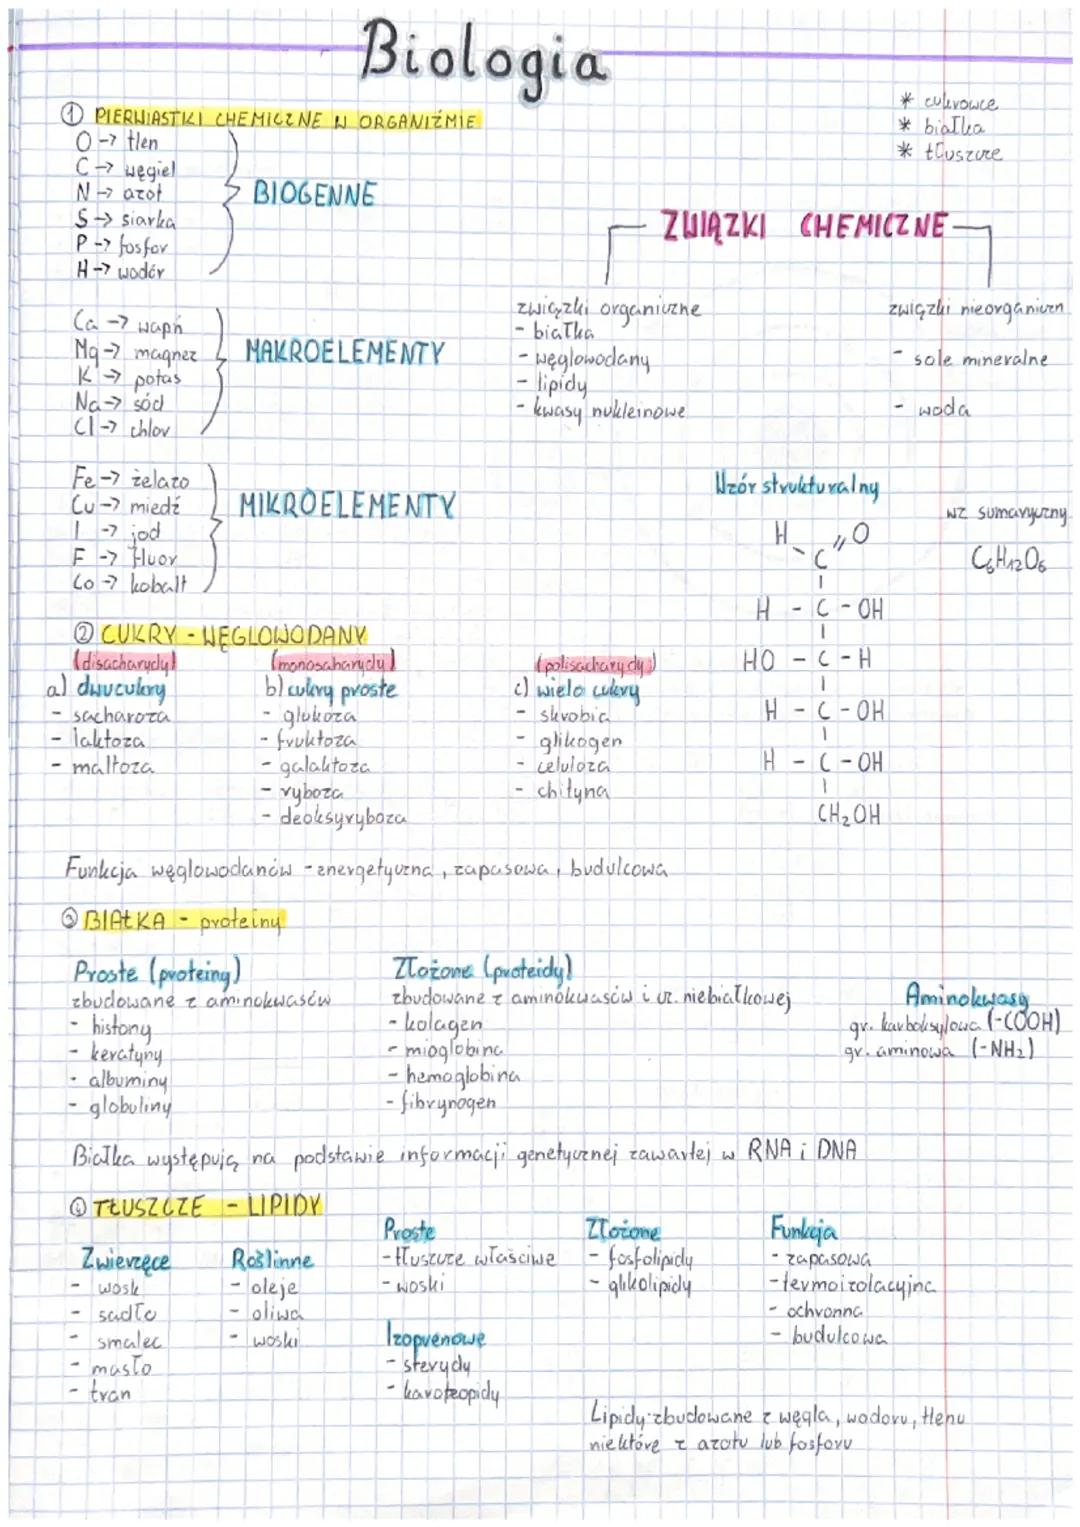 Biologia
* cukrowce
* białka
* tłuszcze
① PIERWIASTKI CHEMICZNE W ORGANIŹMIE
O → tlen
C → węgiel
N → azot
S → siarka
P → fosfor
H → wodór
BIOGENNE
Ca → wapń
Mg → magnez
K → potas
Na → sód
Cl → chlor
MAKROELEMENTY
Fe → żelazo
Cu → miedź
I → jod
F → fluor
Co → kobalt
MIKROELEMENTY
ZWIĄZKI CHEMICZNE
związki organiczne
- białka
- węglowodany
- lipidy
- kwasy nukleinowe
związki nieorganiczn
- sole mineralne
- woda
Wzór strukturalny
H O
C
H - C - OH
HO - C - H
H - C - OH
H - C - OH
CH₂OH
wz sumaryczny
C₆H₁₂O₆
② CUKRY - WĘGLOWODANY
(disacharydy)
a) dwucukry
- sacharoza
- laktoza
- maltoza
(monosaharydy)
b) cukry proste
- glukoza
- fruktoza
- galaktoza
- ryboza
- deoksyryboza
(polisacharydy)
c) wielo cukry
- skrobia
- glikogen
- celuloza
- chityna
Funkcja węglowodanów - energetyczna, zapasowa, budulcowa
③ BIAŁKA - proteiny
Proste (proteiny)
zbudowane z aminokwasów
- histony
- keratyny
- albuminy
- globuliny
Złożone (proteidy)
zbudowane z aminokwasów i cz. niebiałkowej
- kolagen
- mioglobina
- hemoglobina
- fibrynogen
Aminokwasy
gr. karboksylowa (-COOH)
gr. aminowa (-NH₂)
Białka występują na podstawie informacji genetycznej zawartej w RNA i DNA
④ TŁUSZCZE - LIPIDY
Zwierzęce
- wosk
- sadło
- smalec
- masło
- tran
Roślinne
- oleje
- oliwa
- woski
Proste
- tłuszcze właściwe
- woski
Izoprenowe
- sterydy
Złożone
- fosfolipidy
- glikolipidy
Funkcja
- zapasowa
- termoizolacyjna
- ochronna
- budulcowa
Lipidy-zbudowane z węgla, wodoru, tlenu
niektóre z azotu lub fosforu